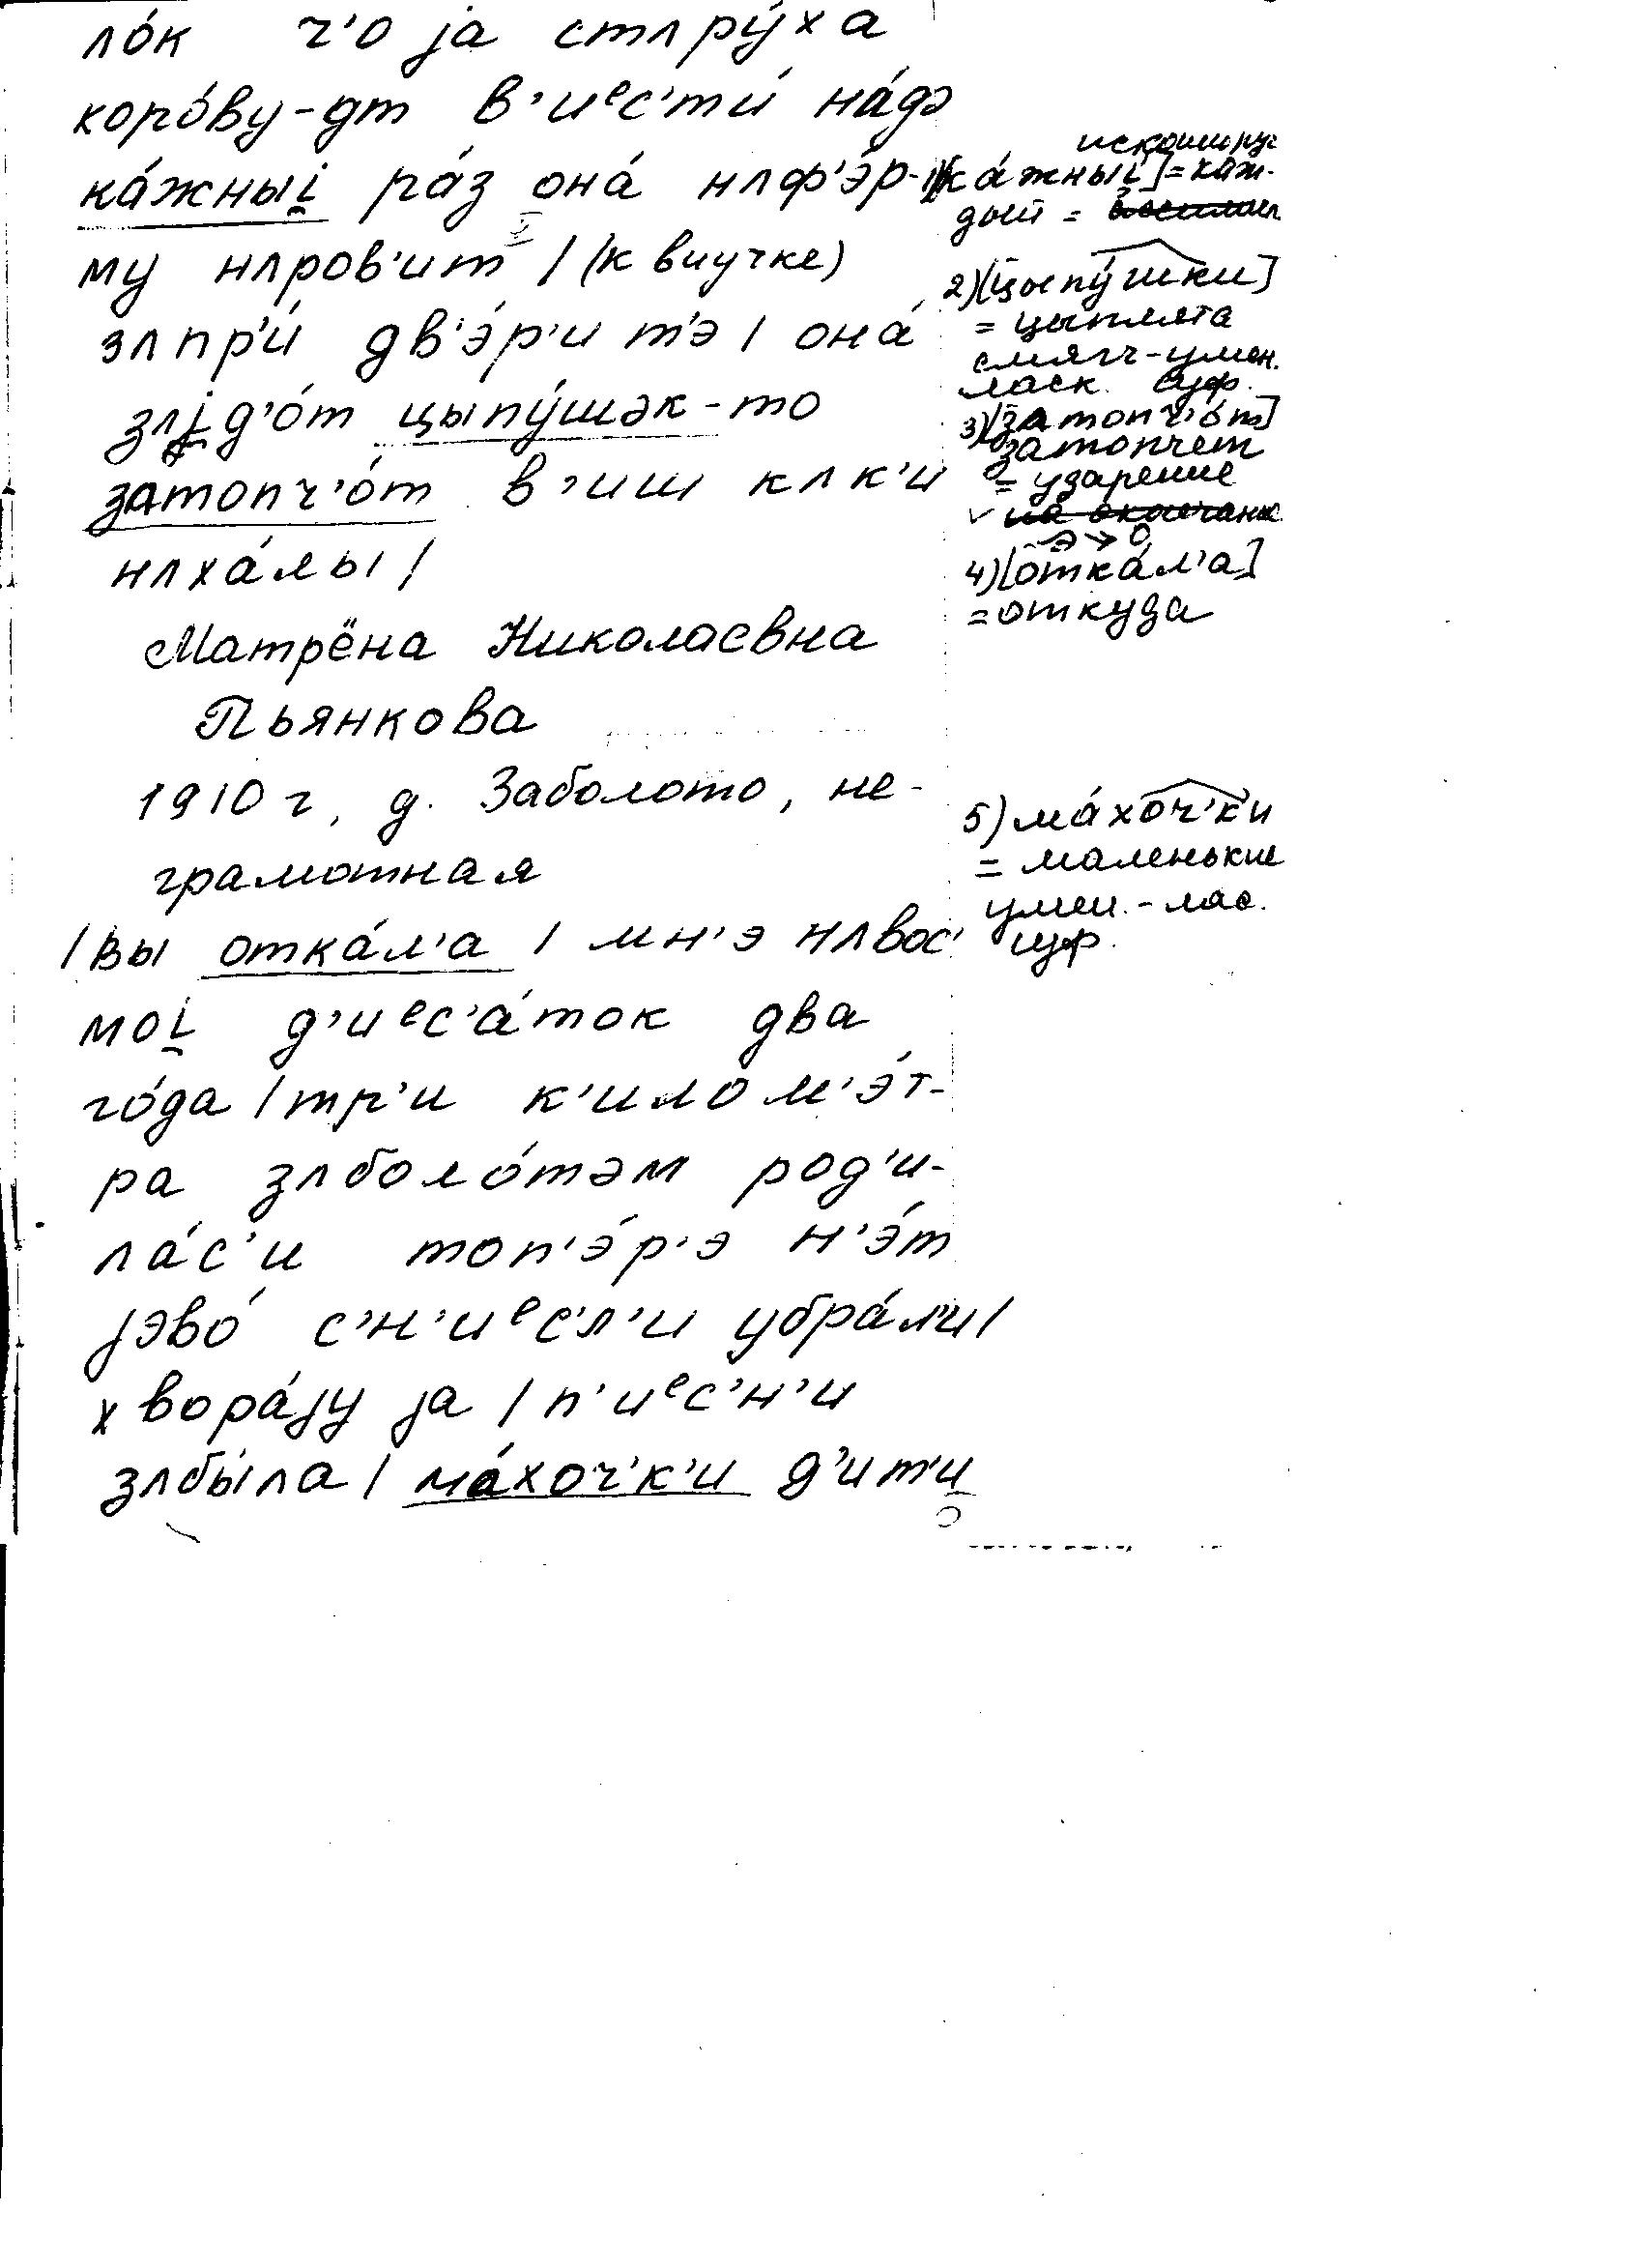 ло́к ч'о ја стлру́ха
коро́ву-дт в'иᵉс'ти́ на́дэ
ка́жныi̯ ра́з она́ нлф'э́р-
му нлров'ит / (к внучке)
злпр'и́ дв'э́р'и т'э / она́
злјд'о́т цыпу́шәк-то
затопч'о́т в'иш клк'и
нлха́лы /
Матрёна Николаевна
Пьянкова
1910 г, д. Заболото, не-
грамотная
/ вы отка́л'а / мн'э нлвос'
моi̯ д'иᵉс'а́ток два
го́да / тр'и к'илом'э́т-
ра злболо́тәм род'и-
ла́с'и топ'э́р'э н'э́т
јэво́ с'н'иᵉс'л'и убра́ли /
хвора́ју ја / п'иᵉс'н'и
злбы́ла / ма́хоч'к'и д'ит'и
1) [ка́жныi̯] = каж-
дый =
2) [цыпу́шки]
= цыплята
смягч-умен.
ласк. суф.
3) [затопч'о́т]
затопчет
= ударение
✓ на окончание
э → о
4) [отка́л'а]
= откуда
5) ма́хоч'к'и
= маленькие
умен.-лас.
суф.